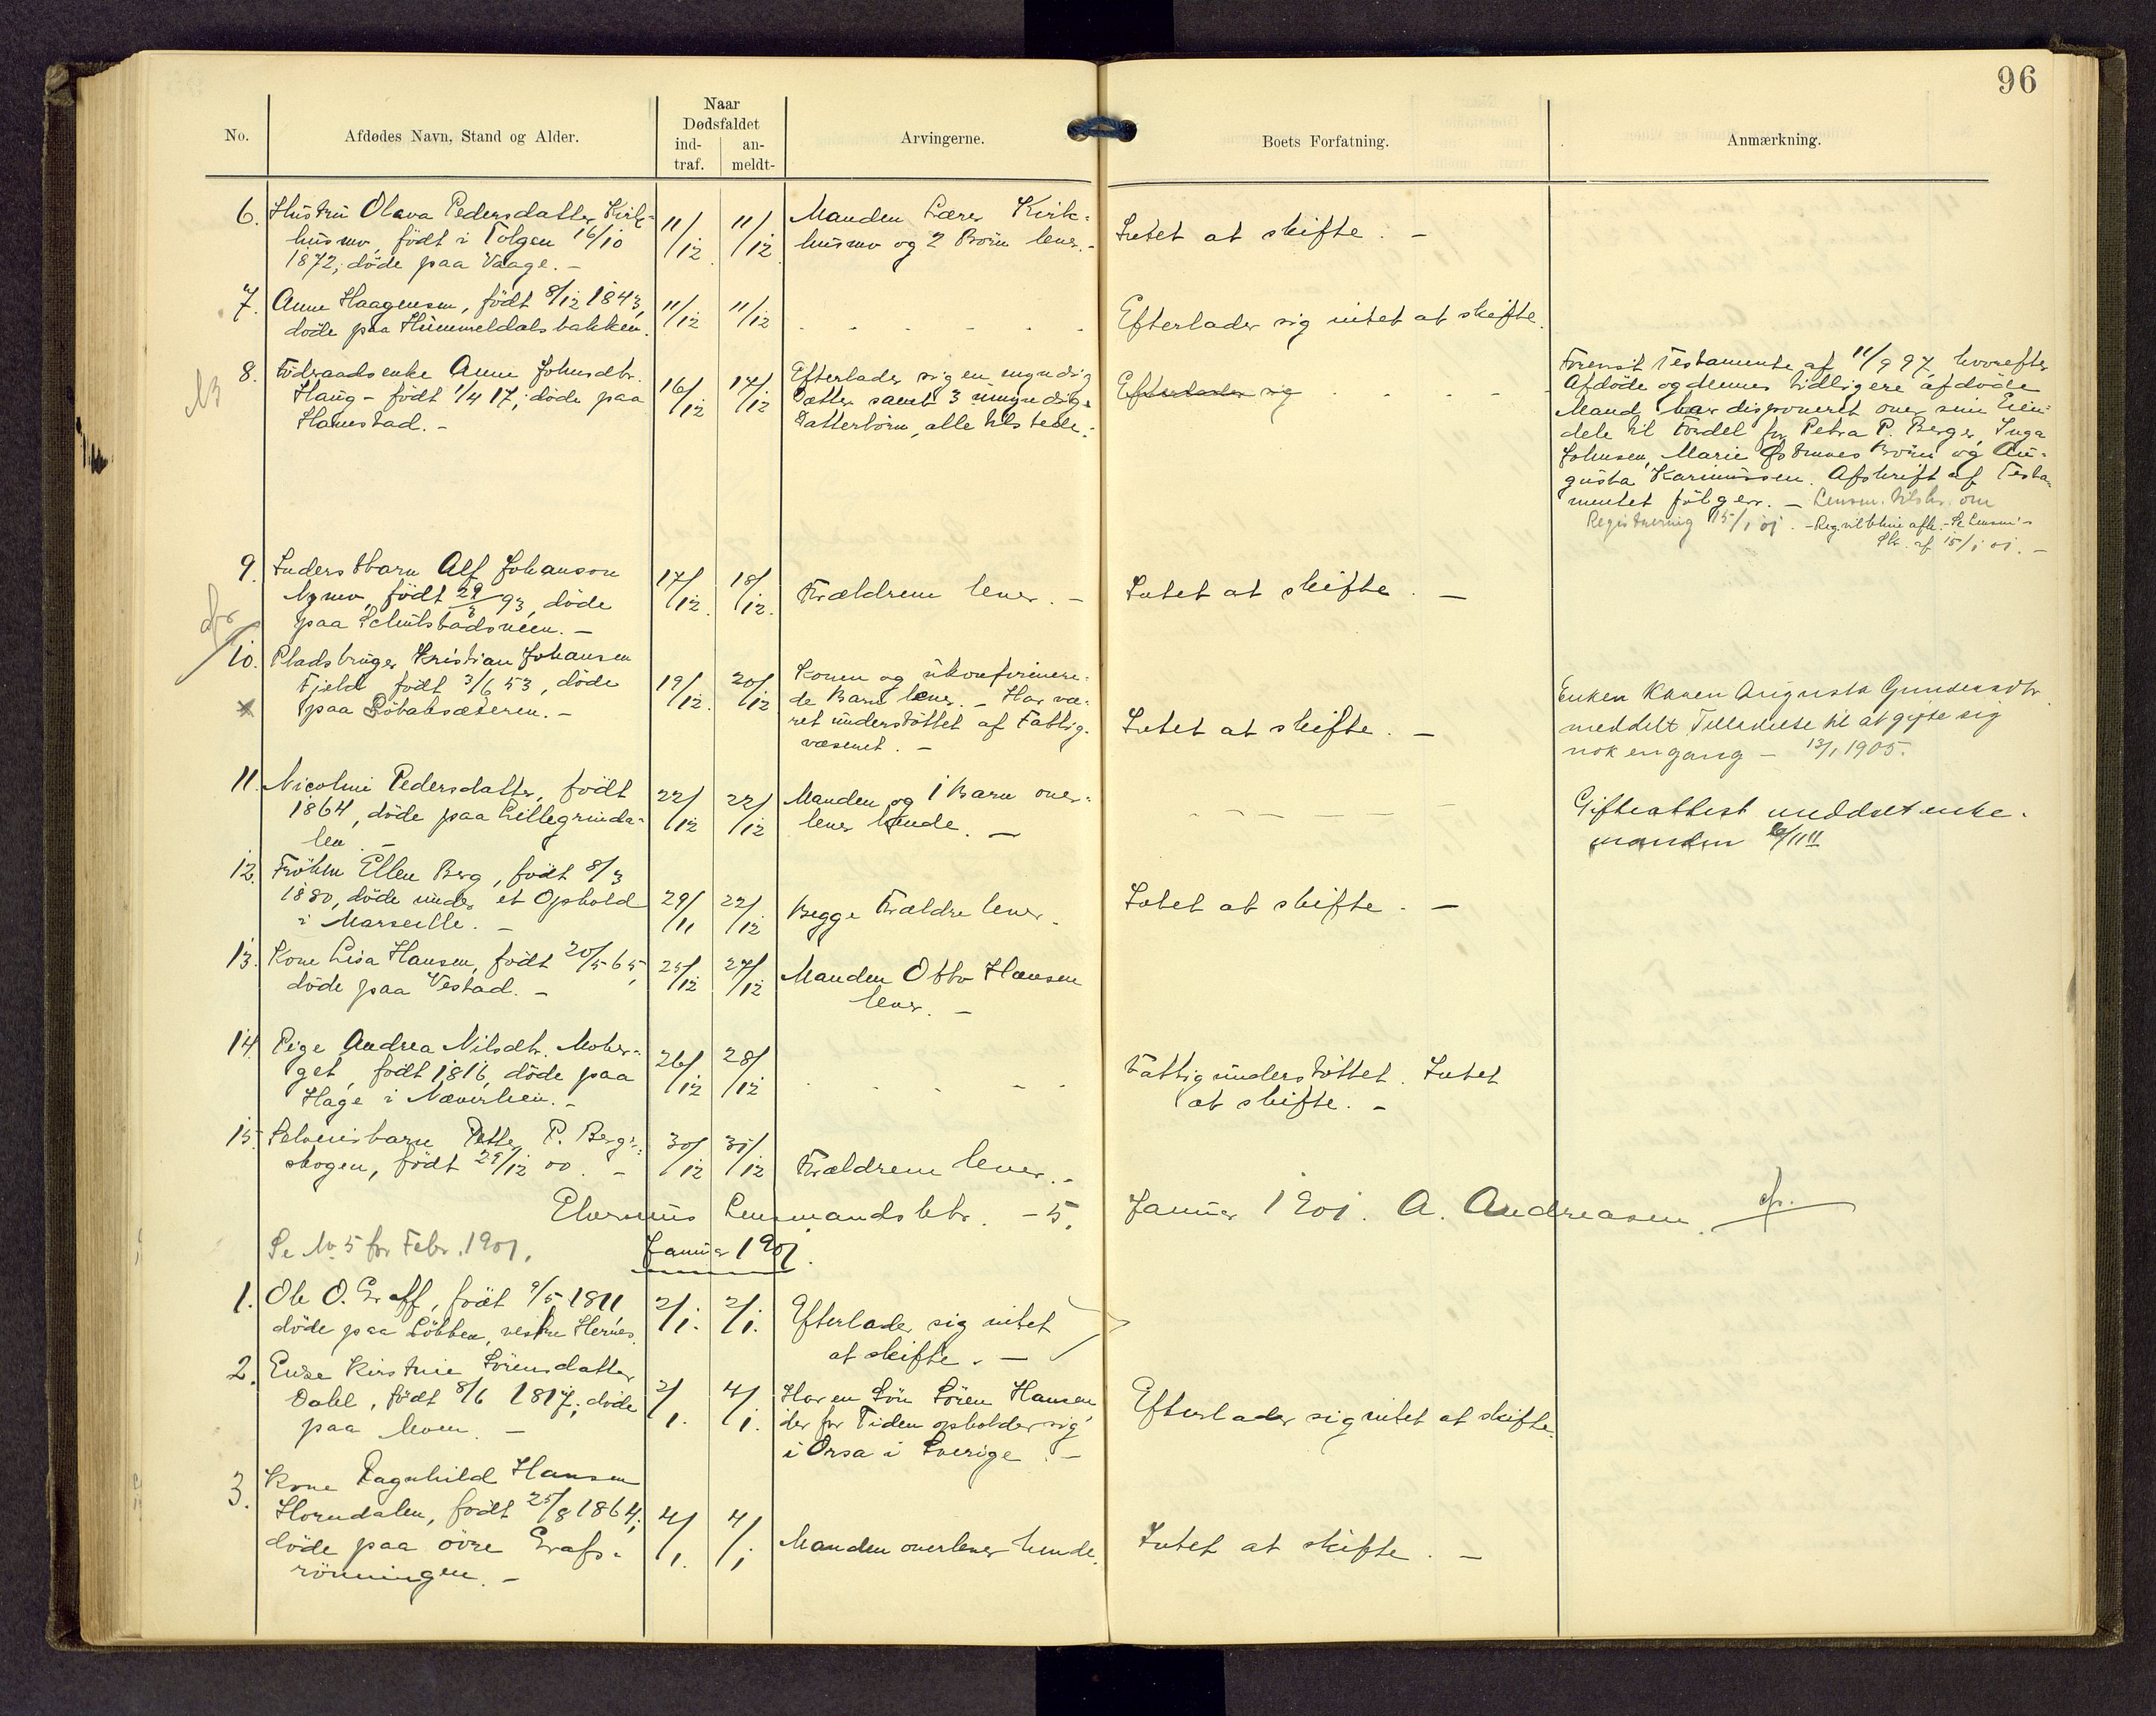 96
No.
Afdødes Navn, Stand og Alder.
Naar
Dødsfaldet
ind-
traf.
an-
meldt-
Arvingerne.
Boets Forfatning.
Anmærkning.
6. Hustru Olava Pedersdatter Kirk-
husmo, født i Tolgen 16/10
1872, døde paa Vaage. -
11/12 11/12
Manden Lærer Kirk-
husmo og 2 Børn lever. -
Intet at skifte. -
7. Anne Haagensen, født 8/12 1843,
døde paa Hummeldalsbakken.
11/12 11/12
Efterlader sig intet at skifte.
NB
8. Føderaadsenke Anne Johnsdtr.
Haug - født 1/4 17; døde paa
Hamstad. -
16/12 17/12
Efterlader sig en myndig
Datter samt 3 umyndige
Datterbørn, alle tilstede.
Efterlader sig
Forevist Testamente af 11/9 97, hvorefter
Afdøde og dennes tidligere afdøde
Mand har disponeret over sine Eien-
dele til Fordel for Petra P. Berger, Inga
Johnsen, Marie Østmoes Børn og Au-
gusta Karinussen. Afskrift af Testa-
mentet følger. - Lensm. tilskr. om
Registrering 15/1 01. - Reg. vil blive afh. - Se Lensm's
Skr. af 15/1 01. -
9. Inderstbarn Alf Johanson
Nymo, født 29/3 93, døde
paa Schulstadsveen. -
17/12 18/12
Forældrene lever. -
Intet at skifte. -
afr
10. Pladsbruger Kristian Johansen
Fjeld, født 3/6 53, døde
paa Løbaksæteren. -
19/12 20/12
Konen og ukonfirmere-
de Barn lever. - Har væ-
ret understøttet af Fattig-
væsenet. -
Intet at skifte. -
Enken Karen Augusta Gundersdtr.
meddelt Tilladelse til at gifte sig
nok engang - 13/1 1905.
11. Nicoline Pedersdatter, født
1864, døde paa Lillegrinda-
len. -
22/12 22/12
Manden og 1 Barn over-
lever hende. -
Gifteattest meddelt enke-
manden
12. Frøken Ellen Berg, født 8/3
1880, døde under et Ophold
i Marseille. -
29/11 22/12
Begge Forældre lever.
Intet at skifte. -
13. Kone Lisa Hansen, født 20/5 65,
døde paa Vestad. -
25/12 27/12
Manden Otto Hansen
lever. -
14. Pige Andrea Nilsdtr. Mober-
get, født 1816, døde paa
Hage i Næverlien. -
26/12 28/12
Fattigunderstøttet. Intet
at skifte. -
15. Selveierbarn Petter P. Berg-
skogen, født 29/12 00. -
30/12 31/12
Forældrene lever. -
Elverums Lensmandsktr. - 5. Januar 1901. A. Andreasen.
afr.
Se No 5 for Febr. 1901.
Januar 1901.
1. Ole O. Graff, født 9/5 1811
døde paa Løbben, vestre Hernes.
2/1. 2/1.
Efterlader sig intet
at skifte. -
2. Enke Kirstine Sørensdatter
Dahl, født 8/6 1817; døde
paa Moen. -
2/1. 4/1.
Har en Søn Søren Hansen,
der for Tiden opholder sig
i Orsa i Sverige. -
Efterlader sig intet at skifte.
3. Kone Ragnhild Hansen
Horndalen, født 25/8 1864;
døde paa øvre Grafs-
rønningen. -
4/1. 4/1
Manden overlever hende.
Intet at skifte. -